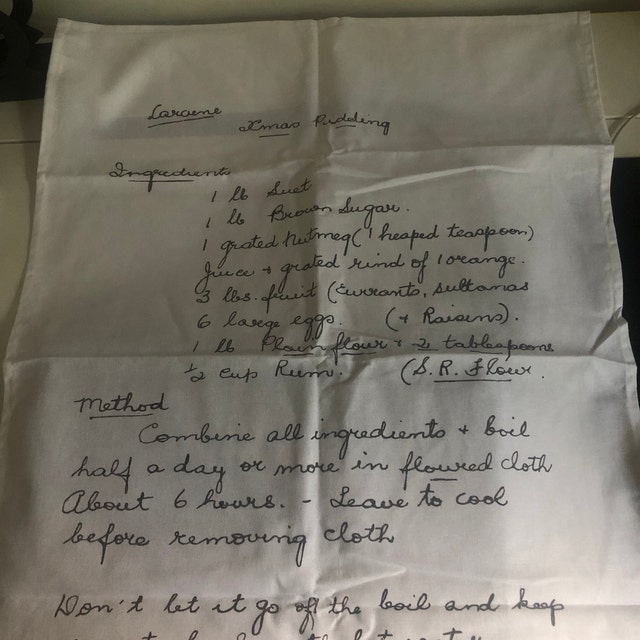 Laraene
Xmas Pudding
Ingredients
1 lb Suet
1 lb Brown Sugar.
1 grated Nutmeg (1 heaped teaspoon)
Juice + grated rind of 1 orange.
3 lbs. fruit (Currants, Sultanas
6 large eggs. (+ Raisins).
1 lb Plain flour + 2 tablespoons
1/2 cup Rum. (S. R. Flour.
Method
Combine all ingredients + boil
half a day or more in floured cloth
About 6 hours. - Leave to cool
before removing cloth
Don't let it go off the boil and keep